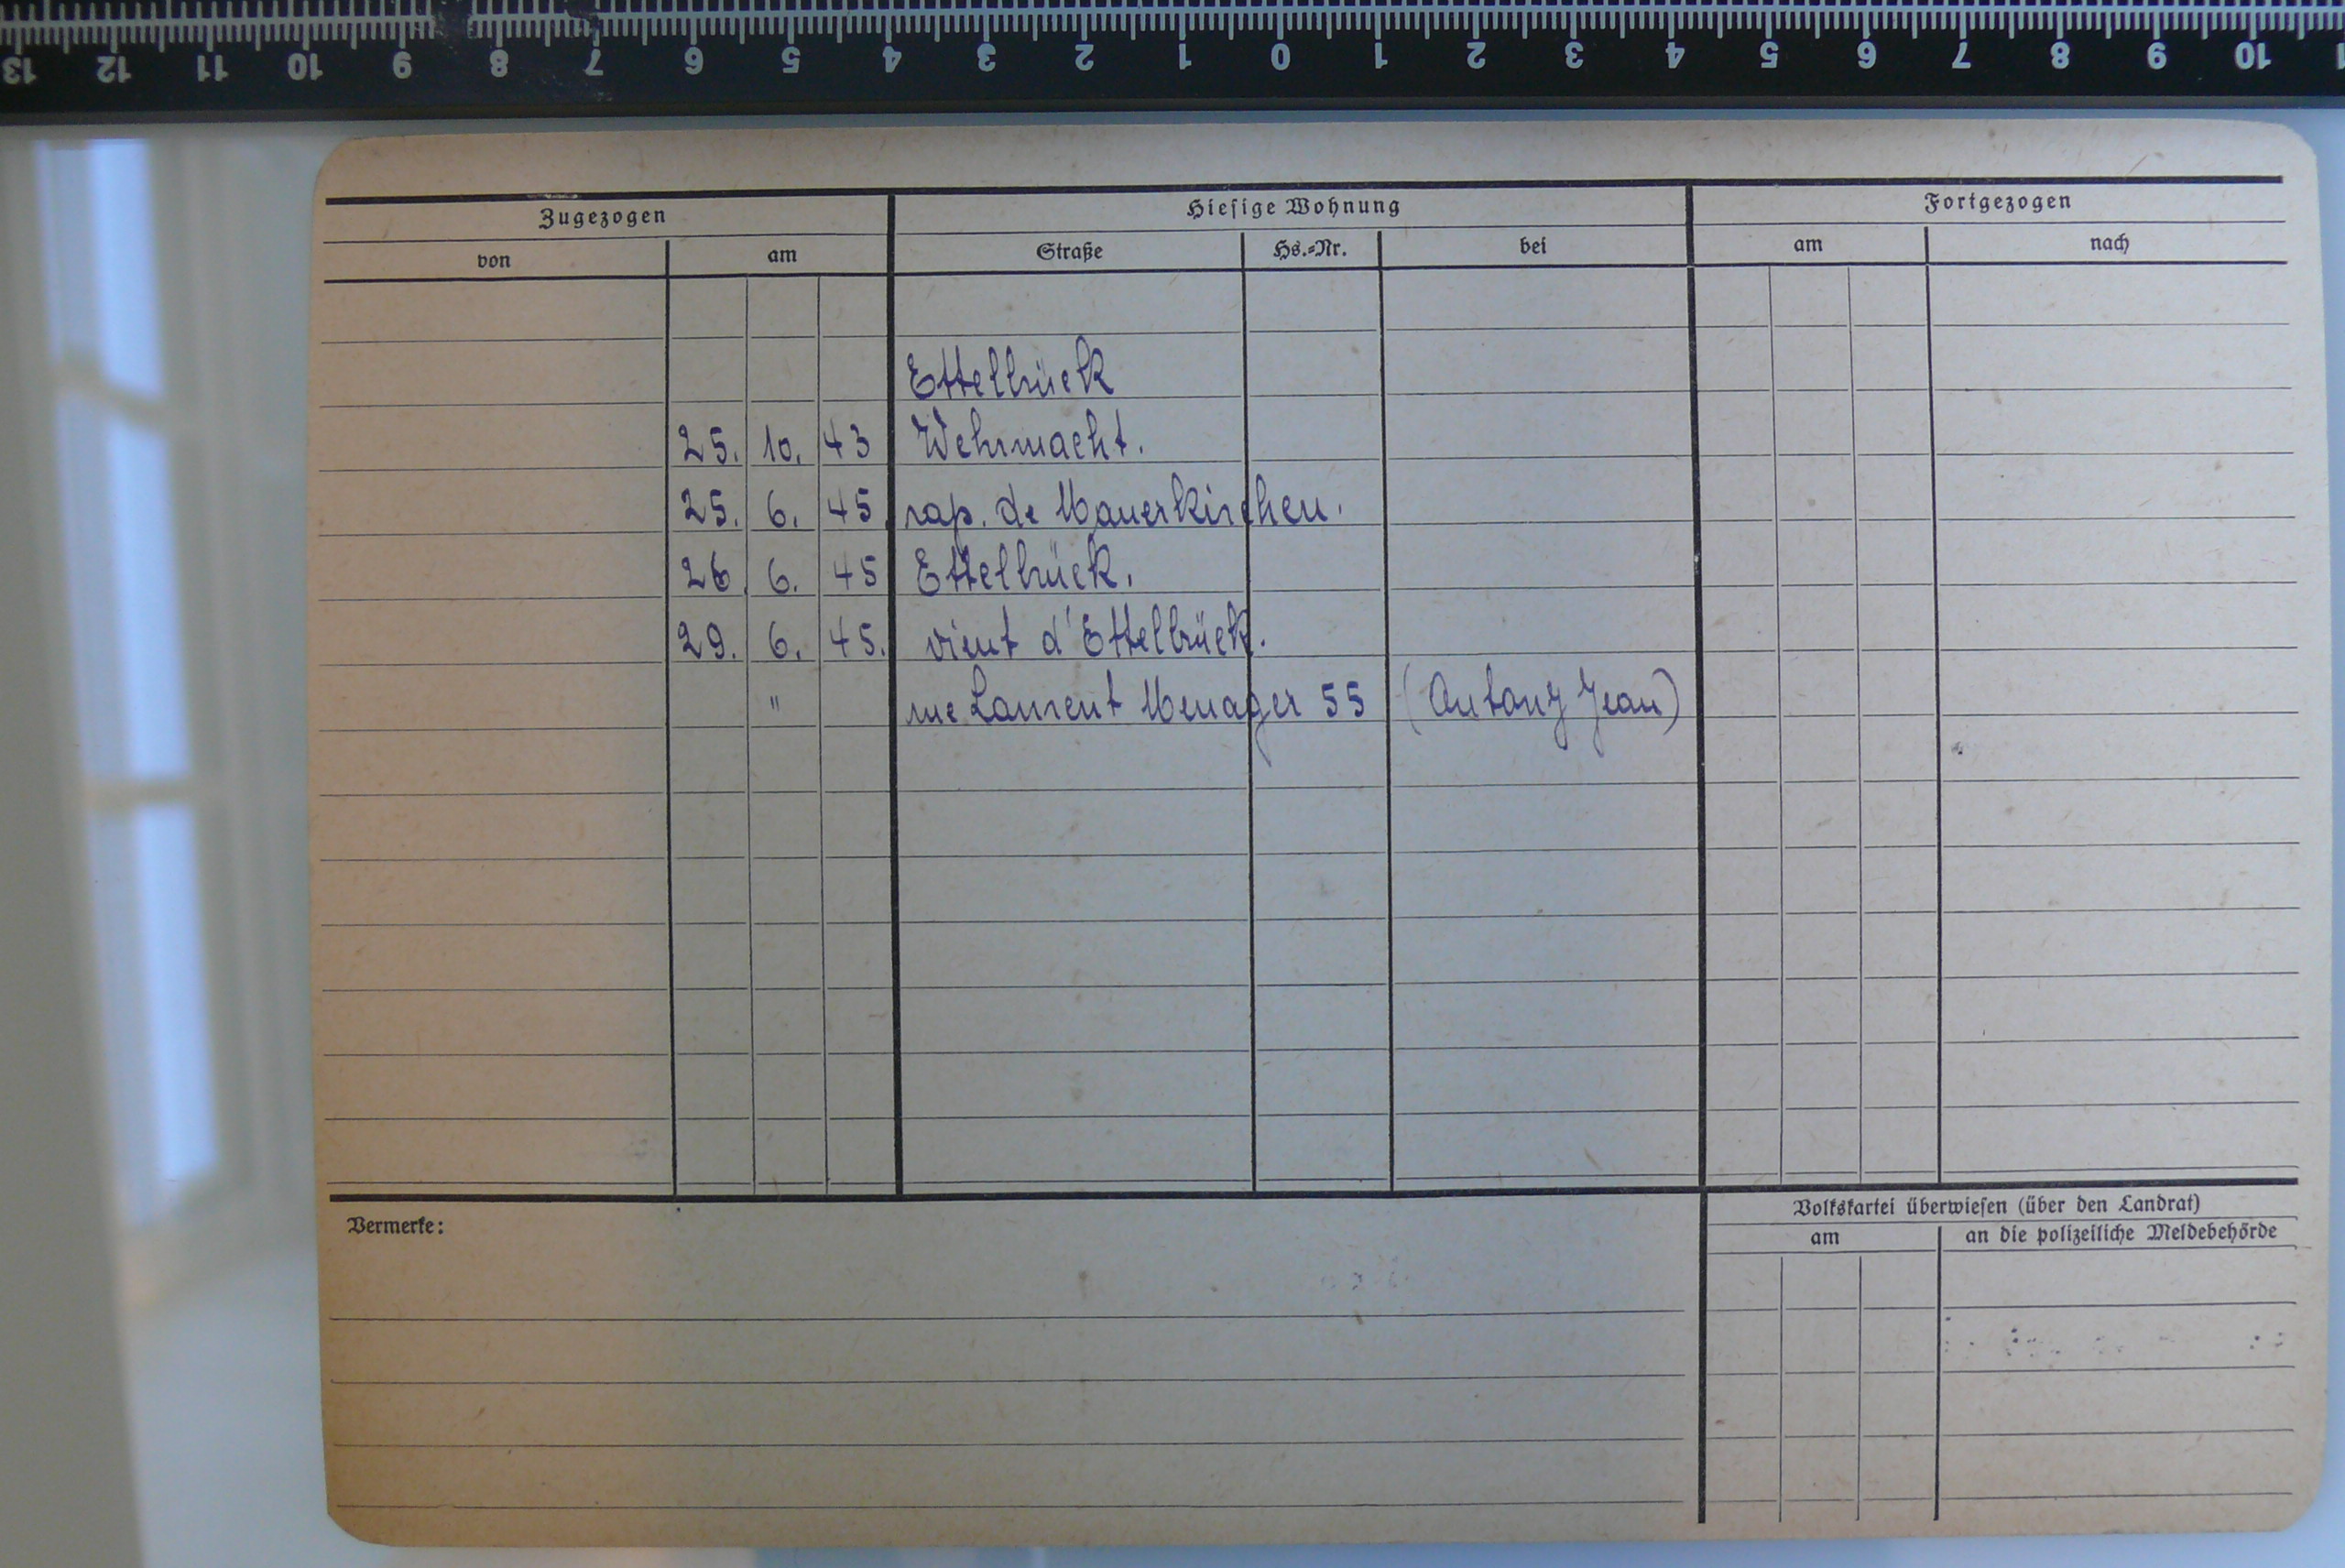 13 12 11 10 9 8 7 6 5 4 3 2 1 0 1 2 3 4 5 6 7 8 9 10
Zugezogen Hiesige Wohnung Fortgezogen
von am Straße Hs.-Nr. bei am nach
Ettelbrück
25. 10. 43 Wehrmacht.
25. 6. 45 rap. de Mauerkirchen.
26 6. 45 Ettelbrück.
29. 6. 45. vient d'Ettelbrück.
" rue Laurent Menager 55 (Antony Jean)
Vermerke: Volkskartei überwiesen (über den Landrat)
am an die polizeiliche Meldebehörde